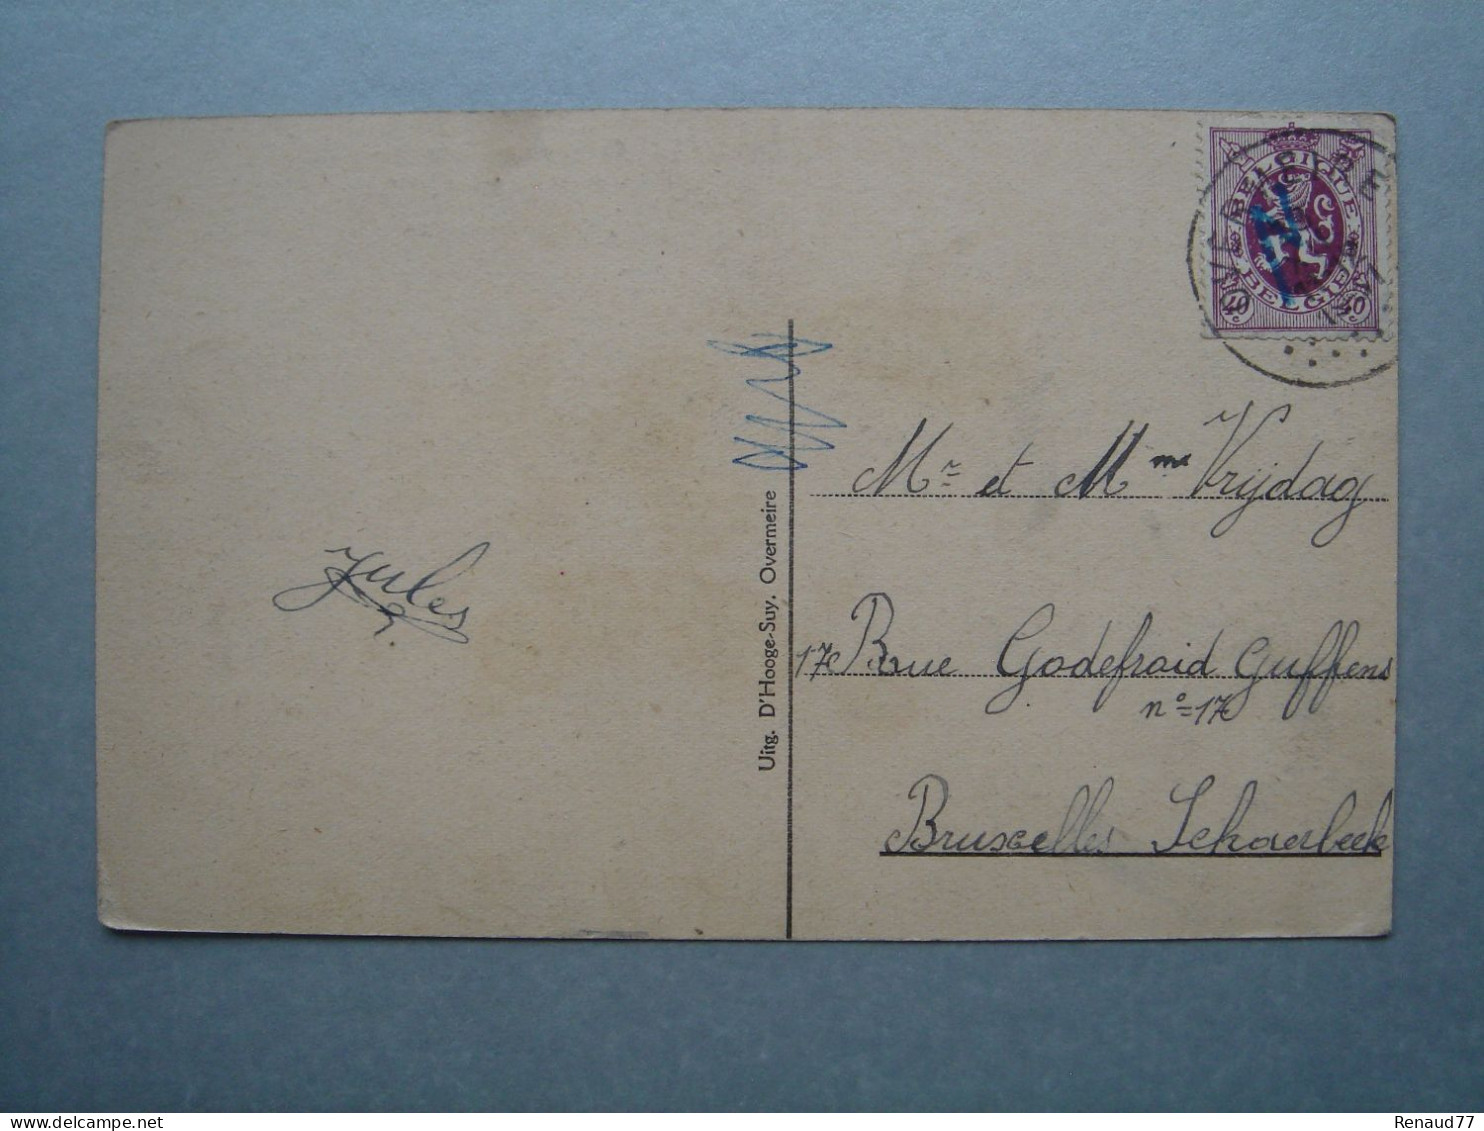 BELGIQUE
BELGIE
40 c
40 c
OVERMEIRE
Mr et Mme Vrijdag
17 Rue Godefroid Guffens
n° = 17
Bruxelles Schaerbeek
Jules
Uitg. D'Hooge-Suy, Overmeire
delcampe.net
Renaud77